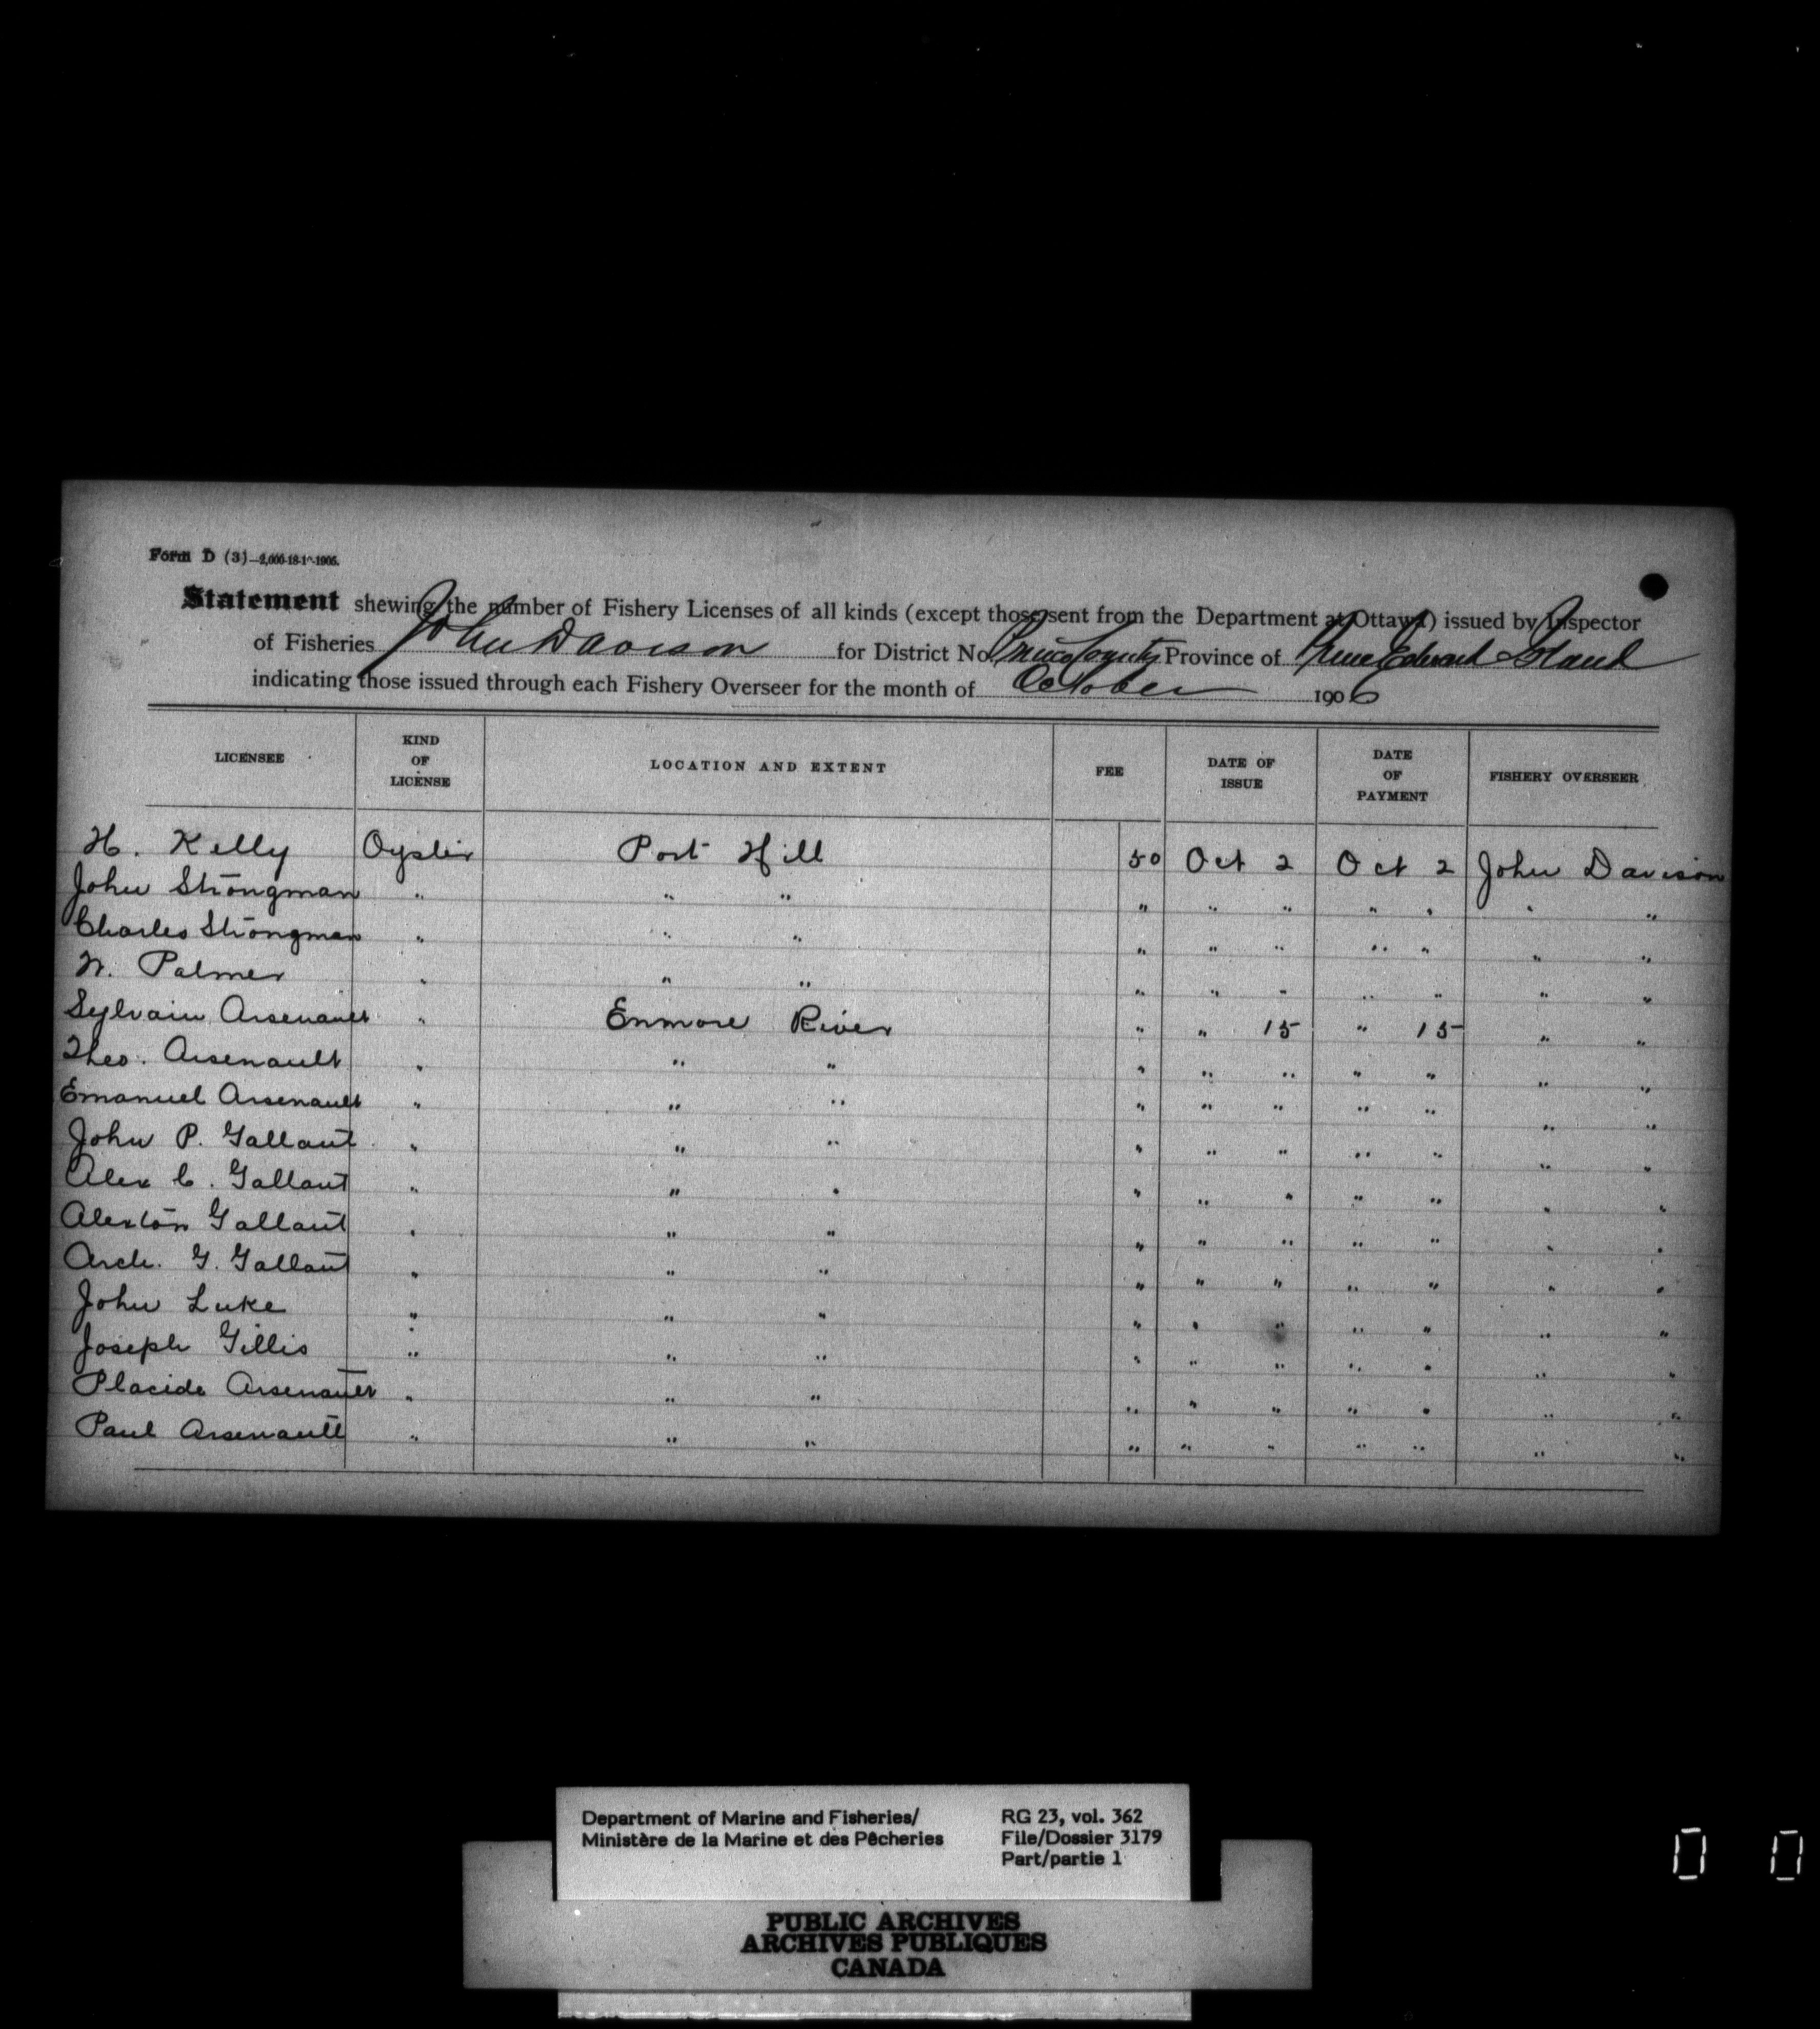 Form D (3)—2,000-18-1-1905.
Statement shewing the number of Fishery Licenses of all kinds (except those sent from the Department at Ottawa) issued by Inspector
of Fisheries John Davison for District No Prince County Province of Prince Edward Island
indicating those issued through each Fishery Overseer for the month of October 1906
LICENSEE KIND OF LICENSE LOCATION AND EXTENT FEE DATE OF ISSUE DATE OF PAYMENT FISHERY OVERSEER
H. Kelly Oyster Port Hill 50 Oct 2 Oct 2 John Davison
John Strongman " " " " " " " " " "
Charles Strongman " " " " " " " " " "
W. Palmer " " " " " " " " " "
Sylvain Arsenault " Enmore River " " 15 " 15 " "
Theo. Arsenault " " " " " " " " " "
Emanuel Arsenault " " " " " " " " " "
John P. Gallant " " " " " " " " " "
Alex C. Gallant " " " " " " " " " "
Gallant " " " " " " " " " "
Arch. G. Gallant " " " " " " " " " "
John Luke " " " " " " " " " "
Joseph Gillis " " " " " " " " " "
Placide Arsenault " " " " " " " " " "
Paul Arsenault " " " " " " " " " "
Department of Marine and Fisheries/
Ministère de la Marine et des Pêcheries
RG 23, vol. 362
File/Dossier 3179
Part/partie 1
PUBLIC ARCHIVES
ARCHIVES PUBLIQUES
CANADA
0 0